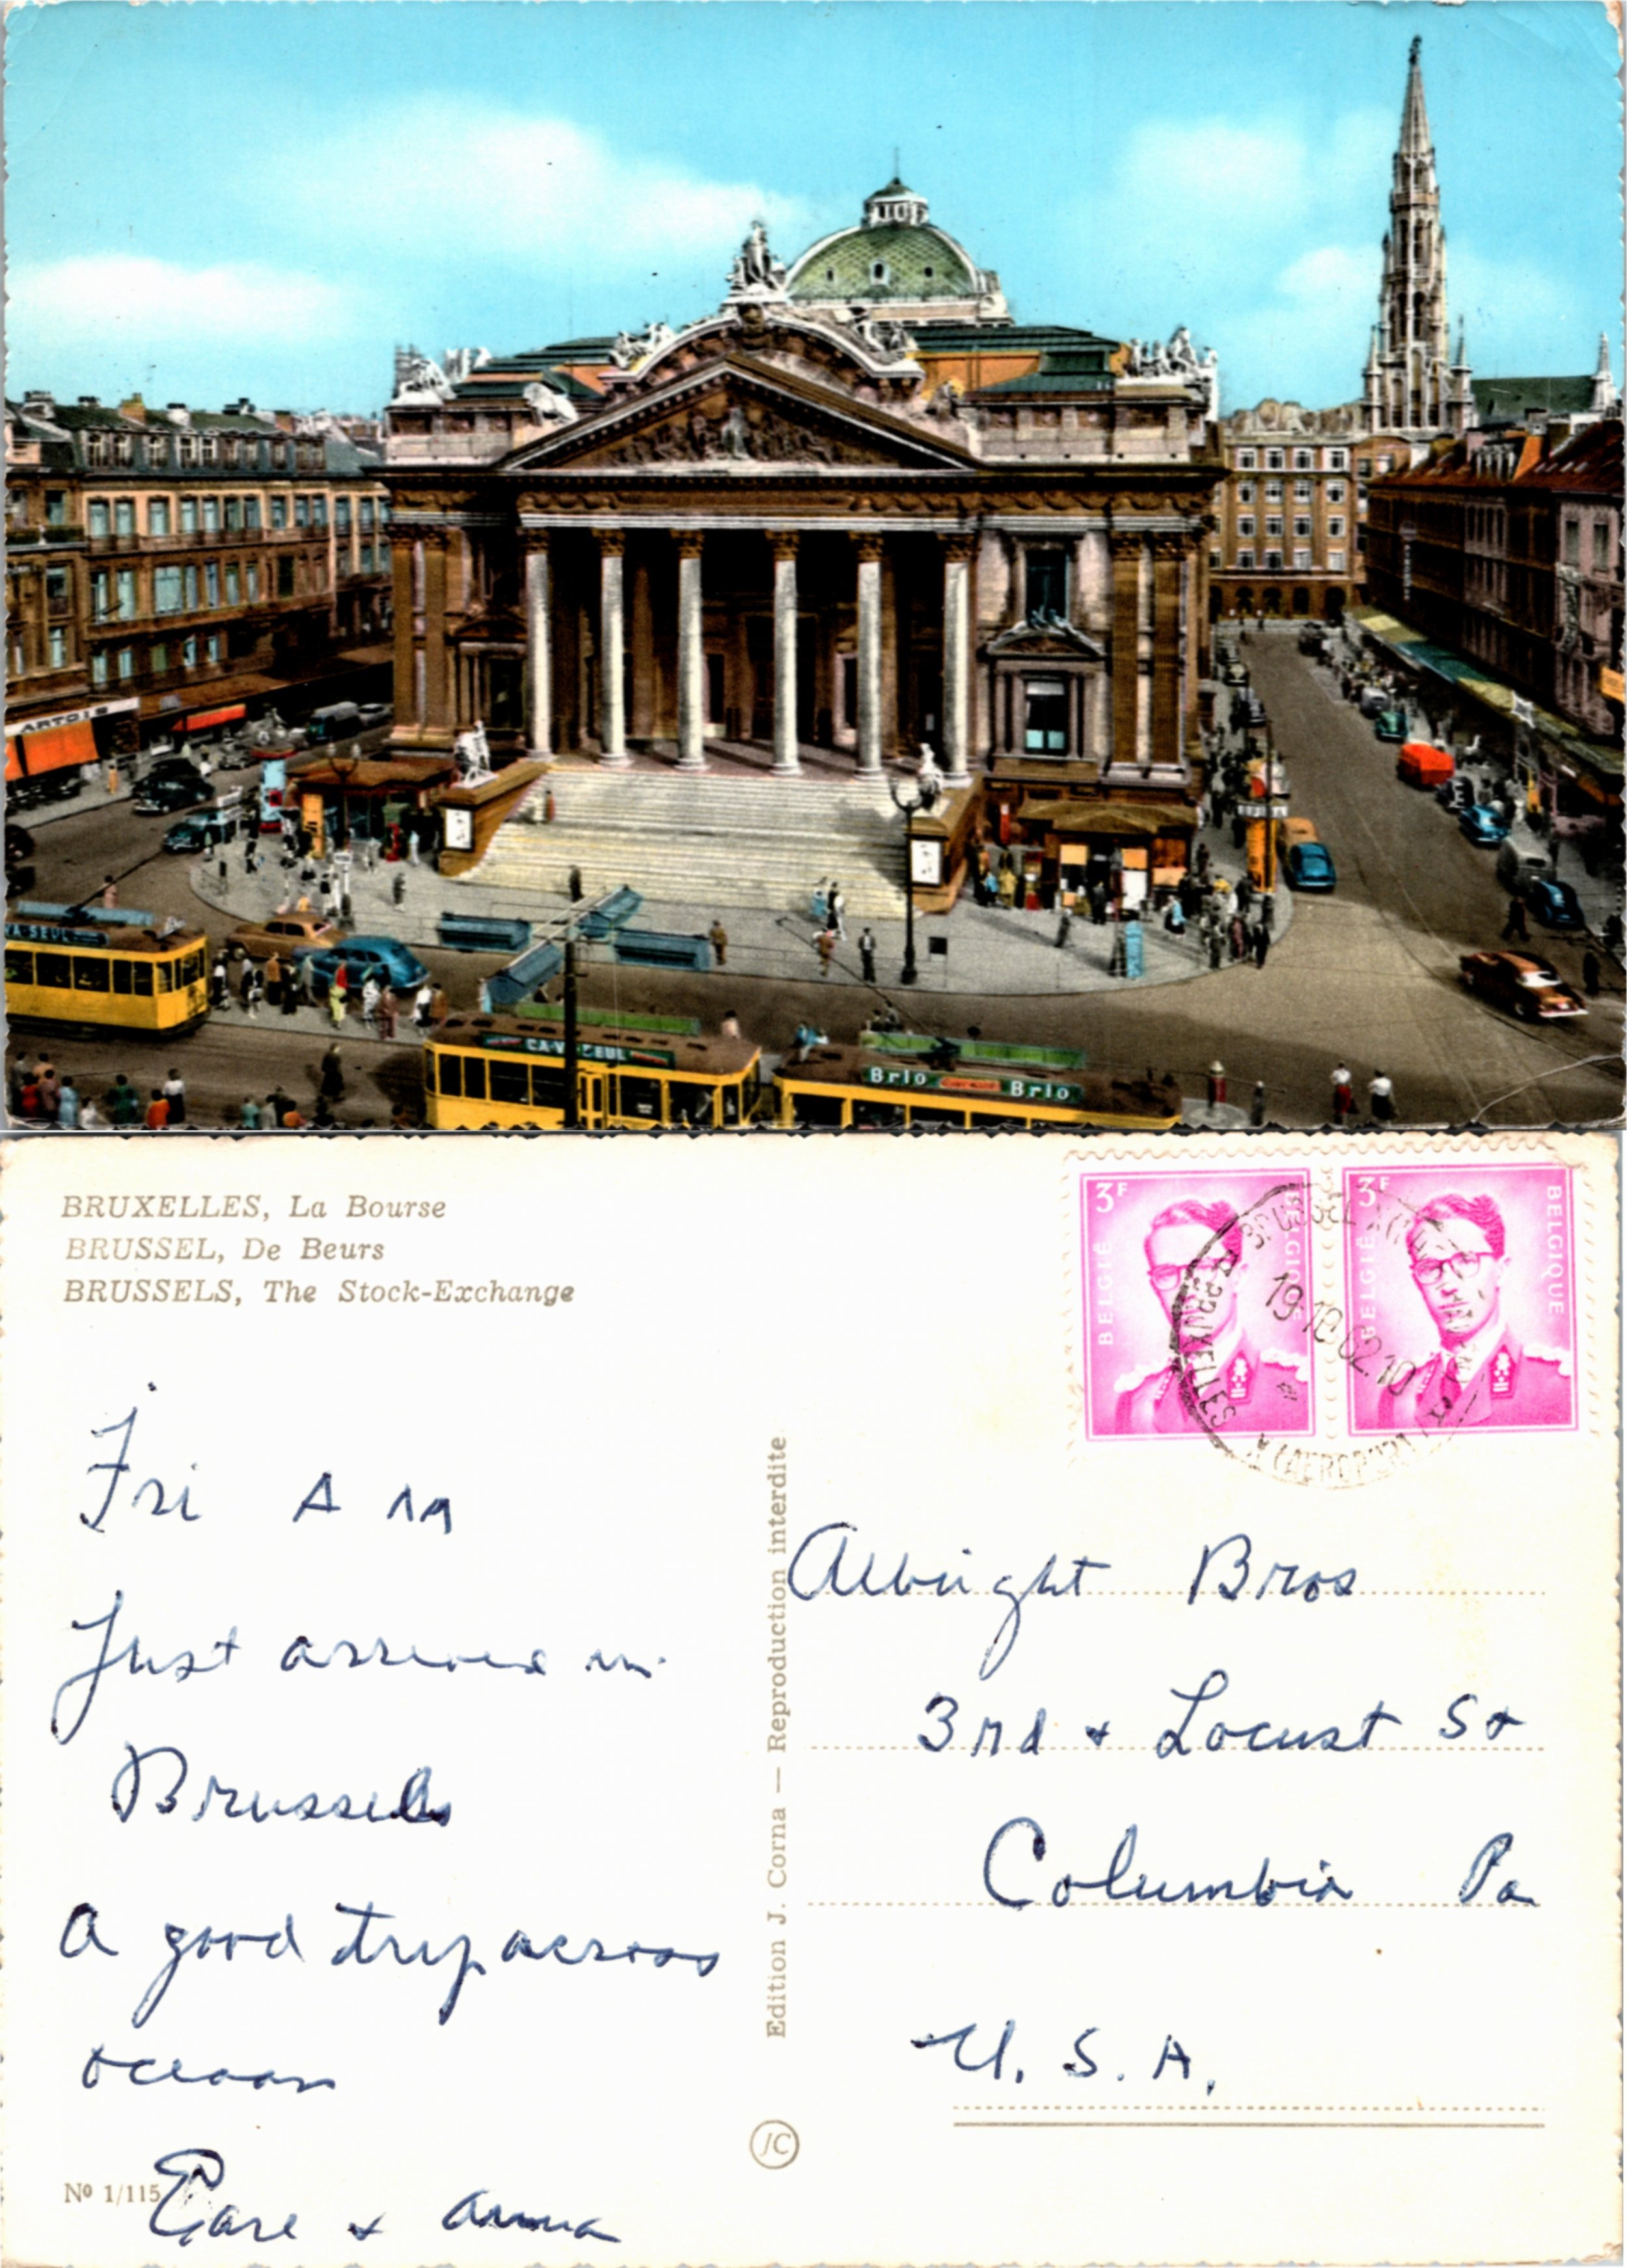 ARTOIS
CA VA SEUL
Brio Brio
BRUXELLES, La Bourse
BRUSSEL, De Beurs
BRUSSELS, The Stock-Exchange
3F BELGIË BELGIQUE
3F BELGIË BELGIQUE
BRUSSEL
19-10 62.10
BRUXELLES
(AEROPORT)
Fri A M
Just arrived in
Brussels
A good trip across
ocean
& Anna
Nº 1/115
Edition J. Corna — Reproduction interdite
JC
Albright Bros
3rd & Locust St
Columbia Pa
U. S. A.